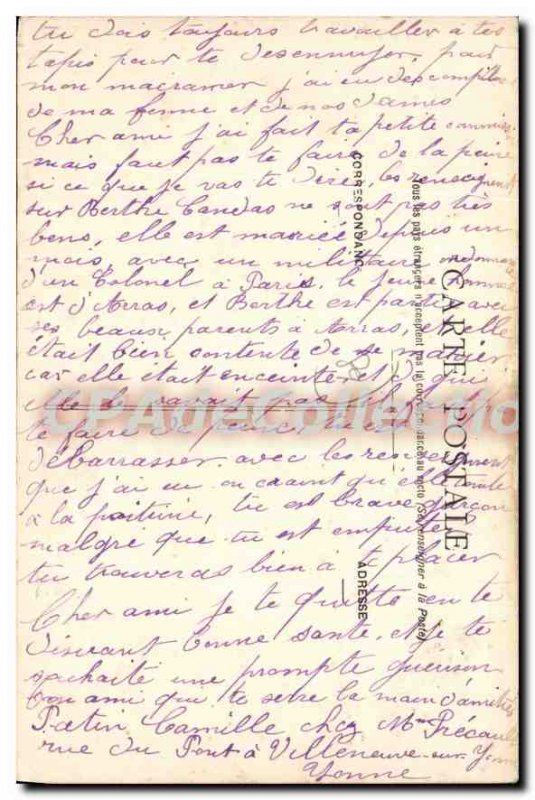 tu dois toujours travailler à tes
tapis pour te desennuyer, pour
mon macramer j'ai eu des compli
de ma femme et de nos dames
Cher ami j'ai fait ta petite commis
mais faut pas te faire de la peine
si ce que je vas te dire, les renseignent
sur Berthe ne sont pas très
bons, elle est mariée depuis un
mois, avec un militaire, ordonnan
d'un Colonel à Paris, le jeune homme
est d'Arras, et Berthe est partie avec
ses beaux parents à Arras, et elle
était bien contente de se marier
car elle était enceinte, et qui
elle le savait pas
te faire de peine
débarrasser avec les renseignement
que j'ai eu on craint qu'elle
à la poitrine, tu est brave garçon
malgré que tu est
tu trouveras bien à te placer
Cher ami je te quitte en te
disirant bonne santé, et je te
souhaite une prompte guerison
ton ami qui te serre la main d'amitiés
Patin Camille chez Mme Précault
rue du Pont à Villeneuve-sur-Yonne
Yonne
CARTE POSTALE
Tous les pays étrangers n'acceptent pas la correspondance au recto (Se renseigner à la Poste)
CORRESPONDANCE
ADRESSE
CPADeCollection